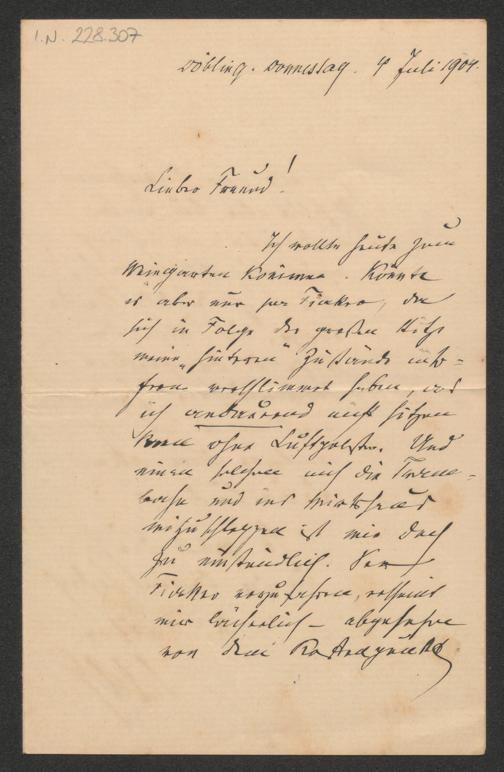 I.N. 228.307
Döbling. Donnerstag. 4 Juli 1904.
Lieber Freund!
Ich wollte heute zum
Weingarten kommen. Könnte
es aber nur per Fiaker, da
sich in Folge der großen Hitze
meine „hinteren" Zustände
verschlimmert haben, und
ich andauernd nicht sitzen
kann ohne Luftpolster. Und
einen solchen auf die Tram-
bahn und ins Wirtshaus
mitzuschleppen ist mir doch
zu umständlich. Per
Fiaker vorzufahren, erscheint
mir lächerlich – abgesehen
von dem Kostenpunkt